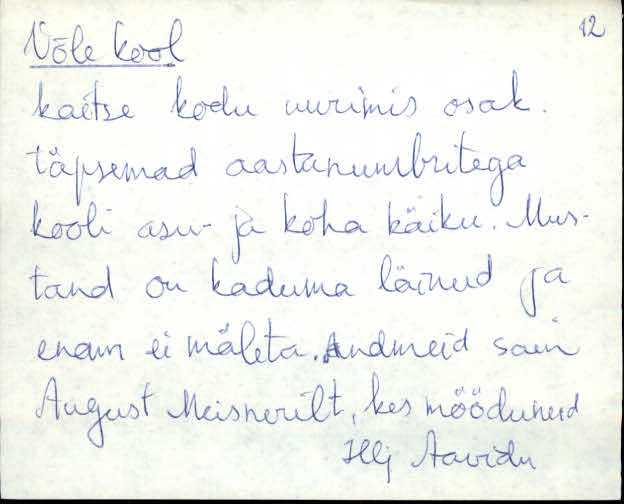 12
Võle kool
kaitse kodu uurimis osak.
täpsemad aastanumbritega
kooli asu- ja koha käiku. Mus-
tand on kaduma läinud ja
enam ei mäleta. Andmeid sain
August Meisnerilt, kes möödunud
Hlj Aavidu